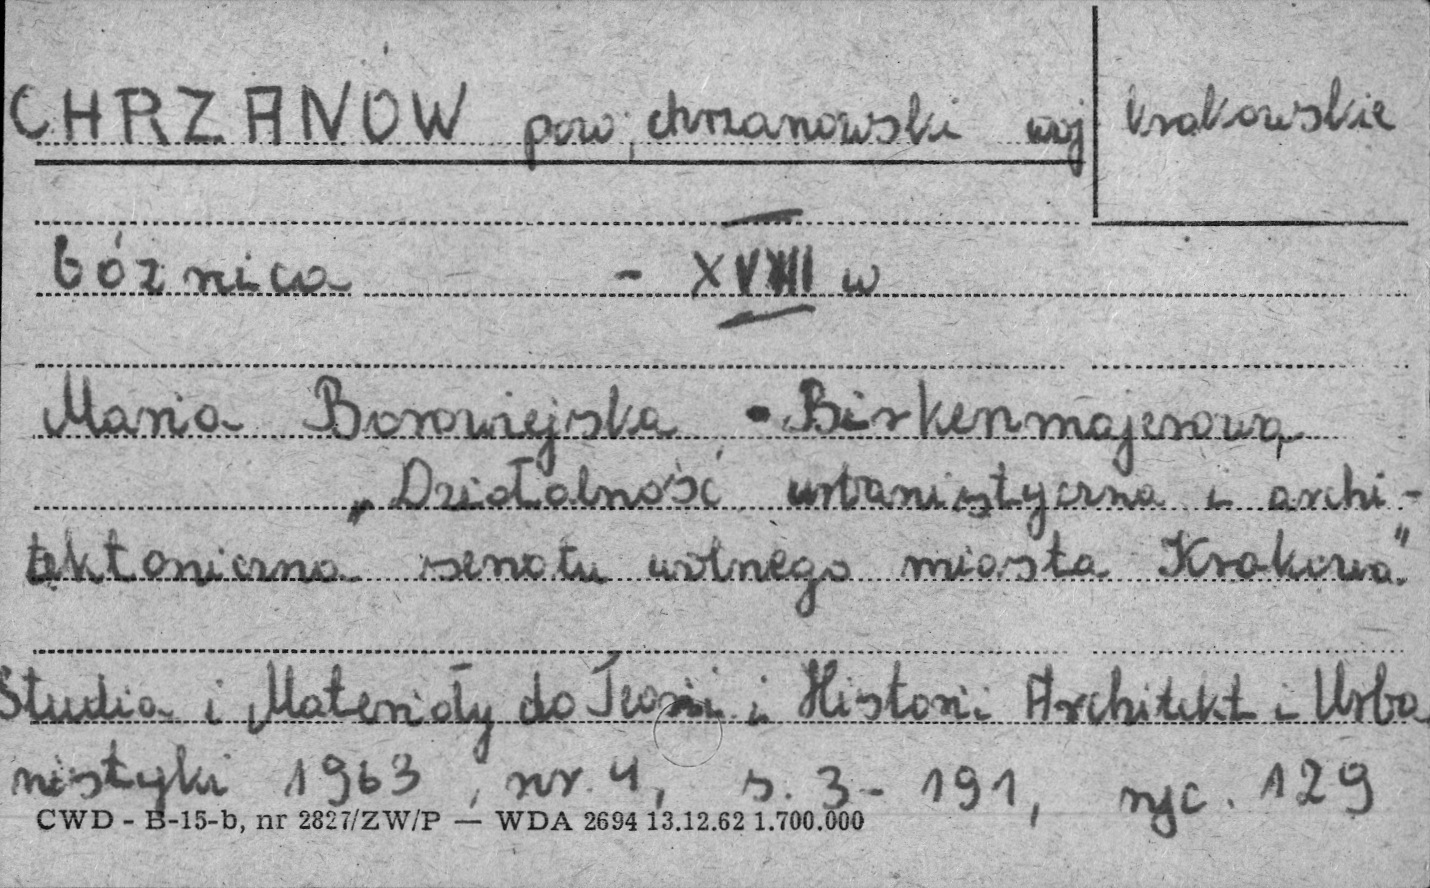 CHRZANÓW pow. chrzanowski woj krakowskie
bóżnica - XVIII w
Maria Borowiejska - Birkenmajerowa
„Działalność urbanistyczna i archi-
tektoniczna senatu wolnego miasta Krakowa"
Studia i Materiały do Teorii i Historii Architekt i Urba
nistyki 1963, nr. 4, s. 3-191, ryc. 129
CWD - B-15-b, nr 2827/ZW/P — WDA 2694 13.12.62 1.700.000